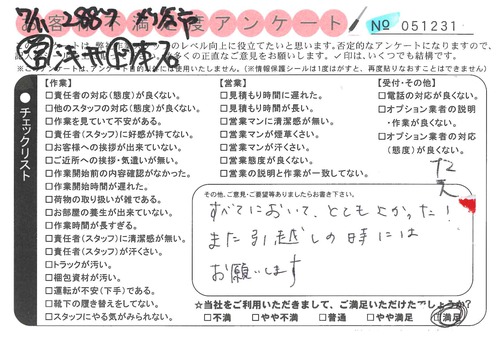 お客様満足度アンケート
No 051231
7/11 2887
このアンケートは、弊社
のレベル向上に役立てたいと思います。否定的なアンケートになりますので、
多くの正直なご意見をお願いします。✓印は、いくつでも結構です。
※ご記入のアンケートは、アンケート目的以外には使用いたしません。(※情報保護シールは1度はがすと、再度貼りなおすことはできません。)
●チェックリスト
【作業】
□責任者の対応(態度)が良くない。
□他のスタッフの対応(態度)が良くない。
□作業を見ていて不安がある。
□責任者(スタッフ)に好感が持てない。
□お客様への挨拶が出来ていない。
□ご近所への挨拶・気遣いが無い。
□作業開始前の内容確認がなかった。
□作業開始時間が遅れた。
□荷物の取り扱いが雑である。
□お部屋の養生が出来ていない。
□作業時間が長すぎる。
□責任者(スタッフ)に清潔感が無い。
□責任者(スタッフ)が汗くさい。
□トラックが汚い。
□梱包資材が汚い。
□運転が不安(下手)である。
□靴下の履き替えをしてない。
□スタッフにやる気がみられない。
【営業】
□見積もり時間に遅れた。
□見積もり時間が長い。
□営業マンに清潔感が無い。
□営業マンが煙草くさい。
□営業マンが汗くさい。
□営業態度が良くない。
□営業の説明と作業が一致してない。
【受付・その他】
□電話の対応が良くない。
□オプション業者の説明
・作業が良くない。
□オプション業者の対応
(態度)が良くない。
その他、ご意見・ご要望等ありましたらお書き下さい。
すべてにおいて、とてもよかった!
また引越しの時には
お願いします
☆当社をご利用いただきまして、ご満足いただけたでしょうか?
□不満 □やや不満 □普通 □やや満足 □満足